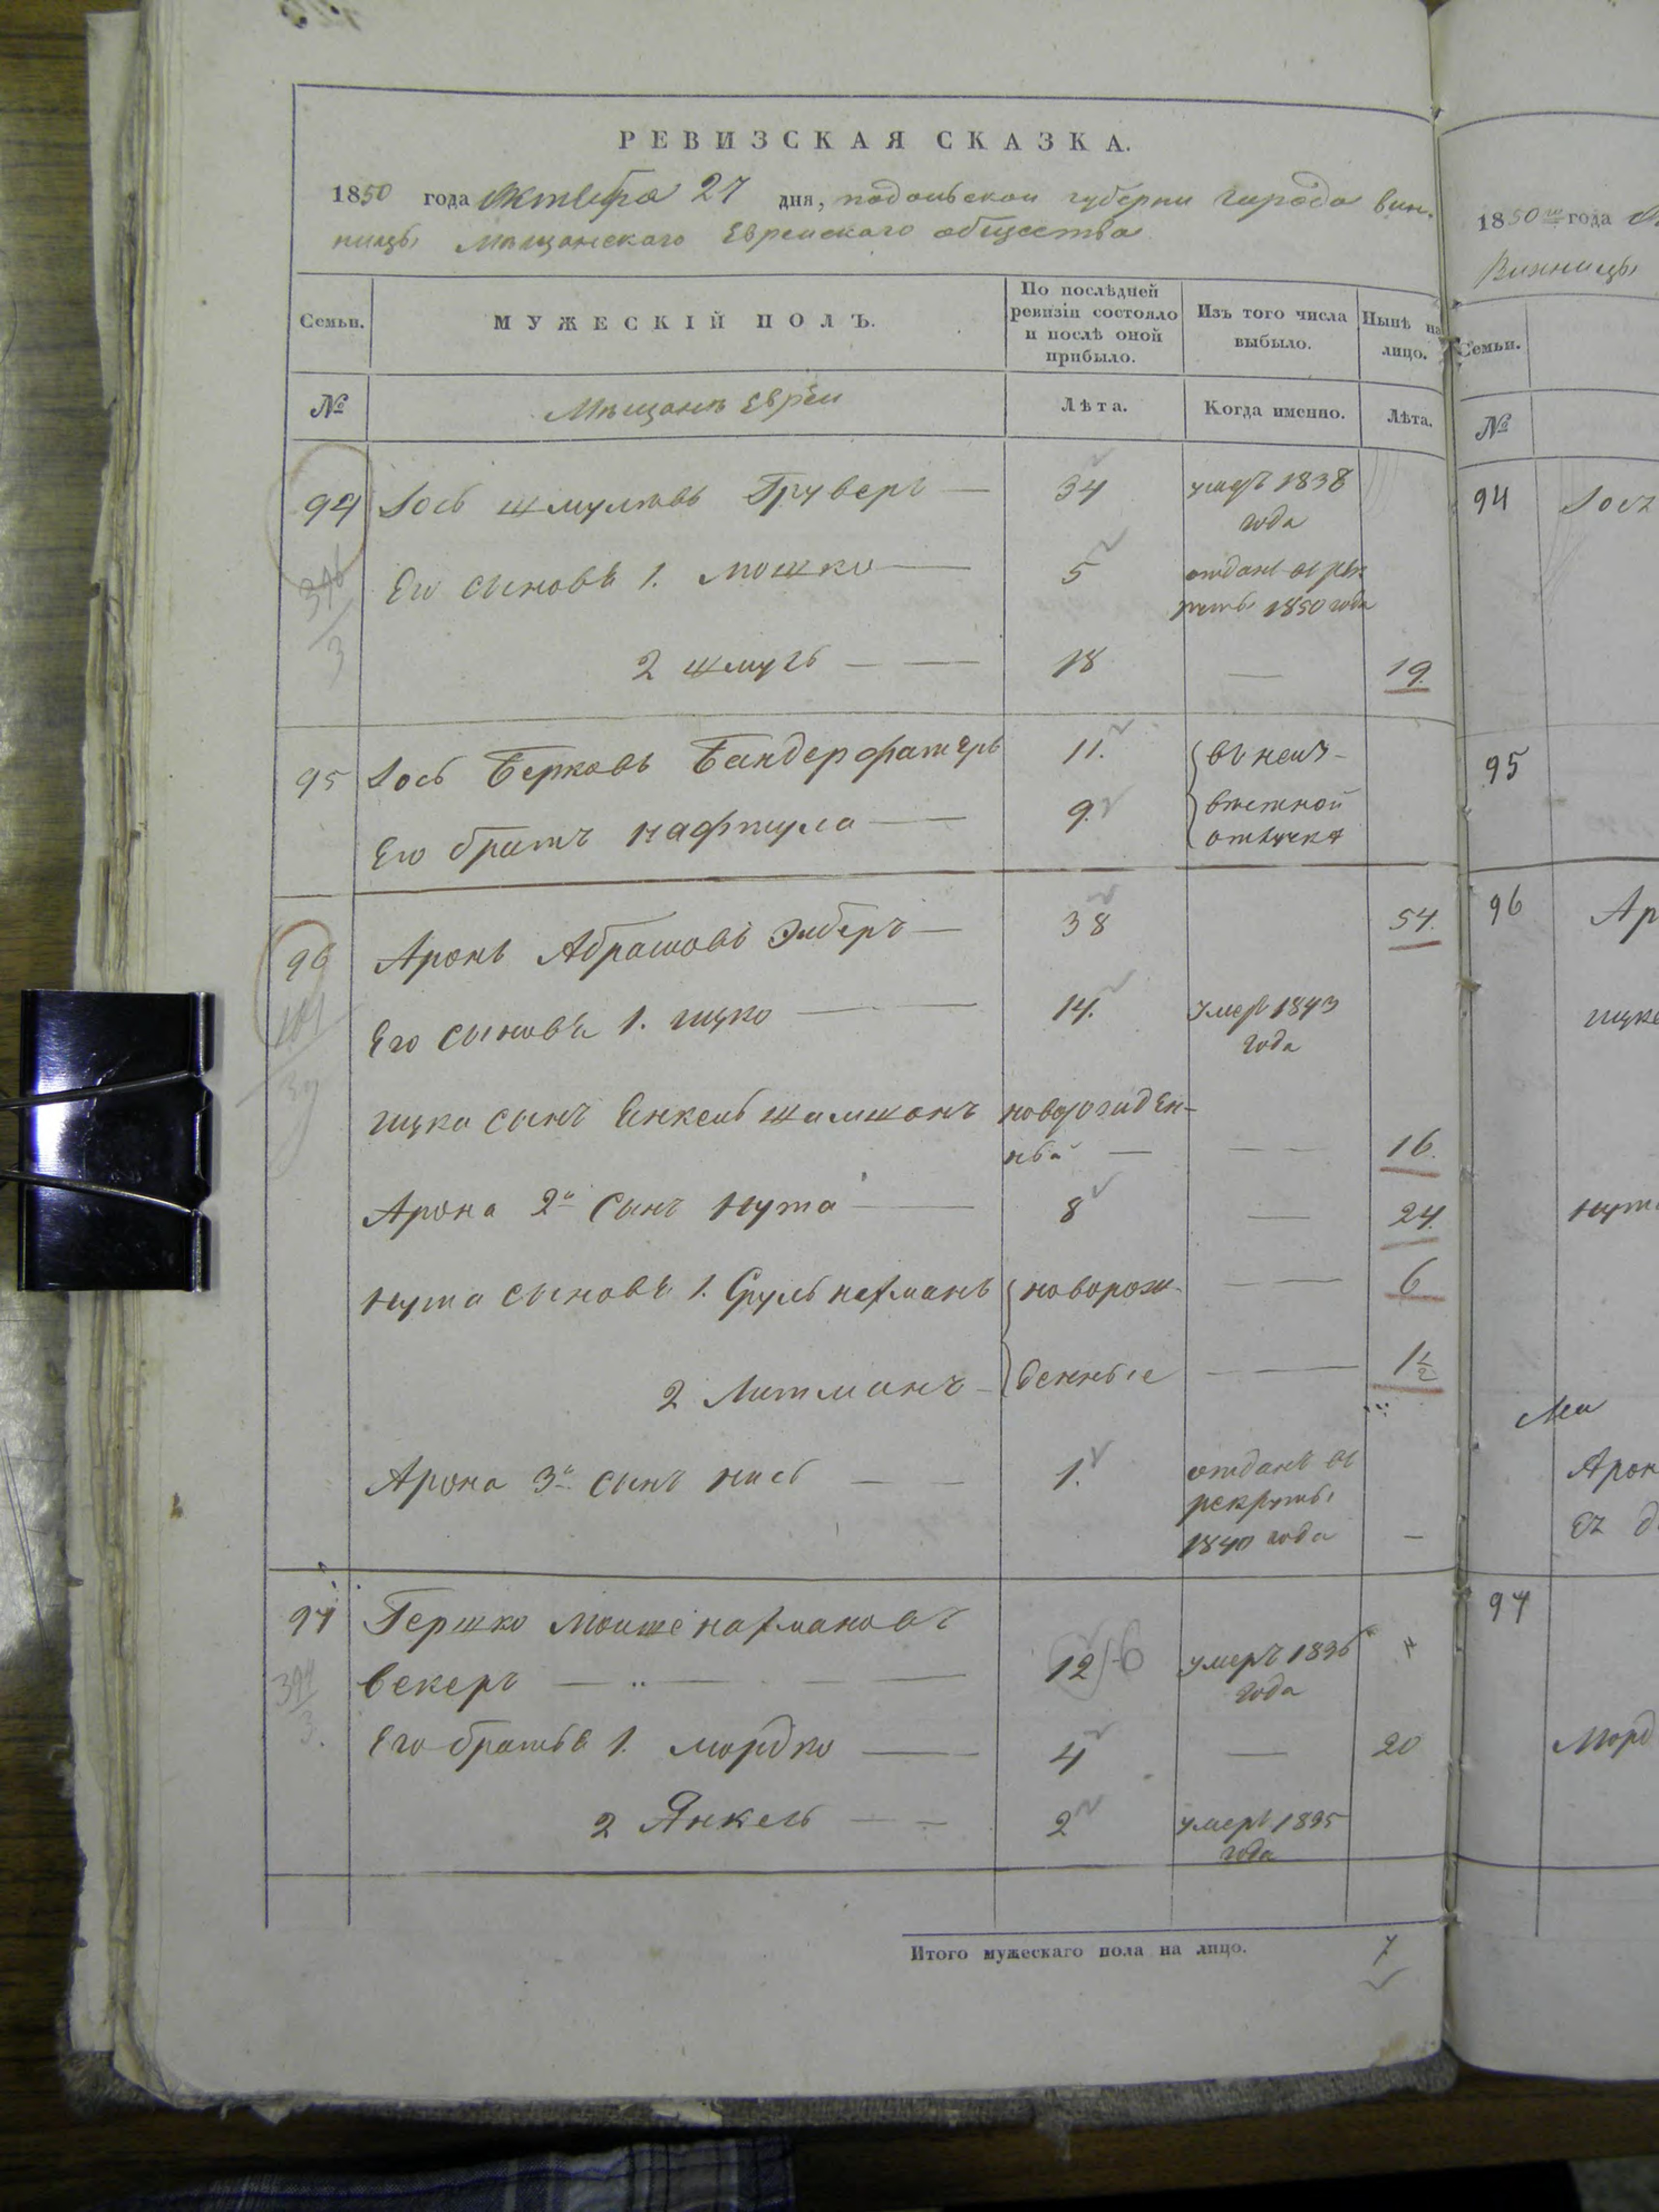 РЕВИЗСКАЯ СКАЗКА.
1850 года Октября 27 дня, подольской губернии города вин-
ницы Мѣщанскаго Еврейскаго общества
Семьи.
МУЖЕСКІЙ ПОЛЪ.
По послѣдней ревизіи состояло и послѣ оной прибыло.
Изъ того числа выбыло.
Нынѣ на лицо.
№
Мѣщанъ Евреи
Лѣта.
Когда именно.
Лѣта.
94 Іось Шмулювъ Груберъ — 34 1838
года
396
3
Его сыновья 1. мошко — 5 отданъ въ рек
руты 1850 года
2 шмуль — — 18 — 19.
95 Іось Берковъ Бандерфатеръ 11. въ неиз-
Его братъ нафтула — 9. вѣстной
отлучкѣ
96 Аронъ Абрамовъ Элберъ — 38 54.
Его сыновья 1. ицко — 14. умеръ 1843
года
ицка сынъ Янкель шамшонъ новорожден-
ный — — — 16.
Арона 2й сынъ нута — 8 — 24.
нута сыновья 1. Сруль нахманъ новорож- — — 6
2 Литманъ — денные — — 1½
Арона 3й сынъ нись — — 1. отданъ въ
рекруты
1840 года —
97 Гершко Мошке нахмановъ
векеръ — — — 12 6 умеръ 1836
года
394
3.
Его братья 1. мордко — 4 — 20
2 Янкель — — 2 умеръ 1835
года
Итого мужескаго пола на лицо. 7
1850 года
Винницы
Семьи.
№
94
95
96
97